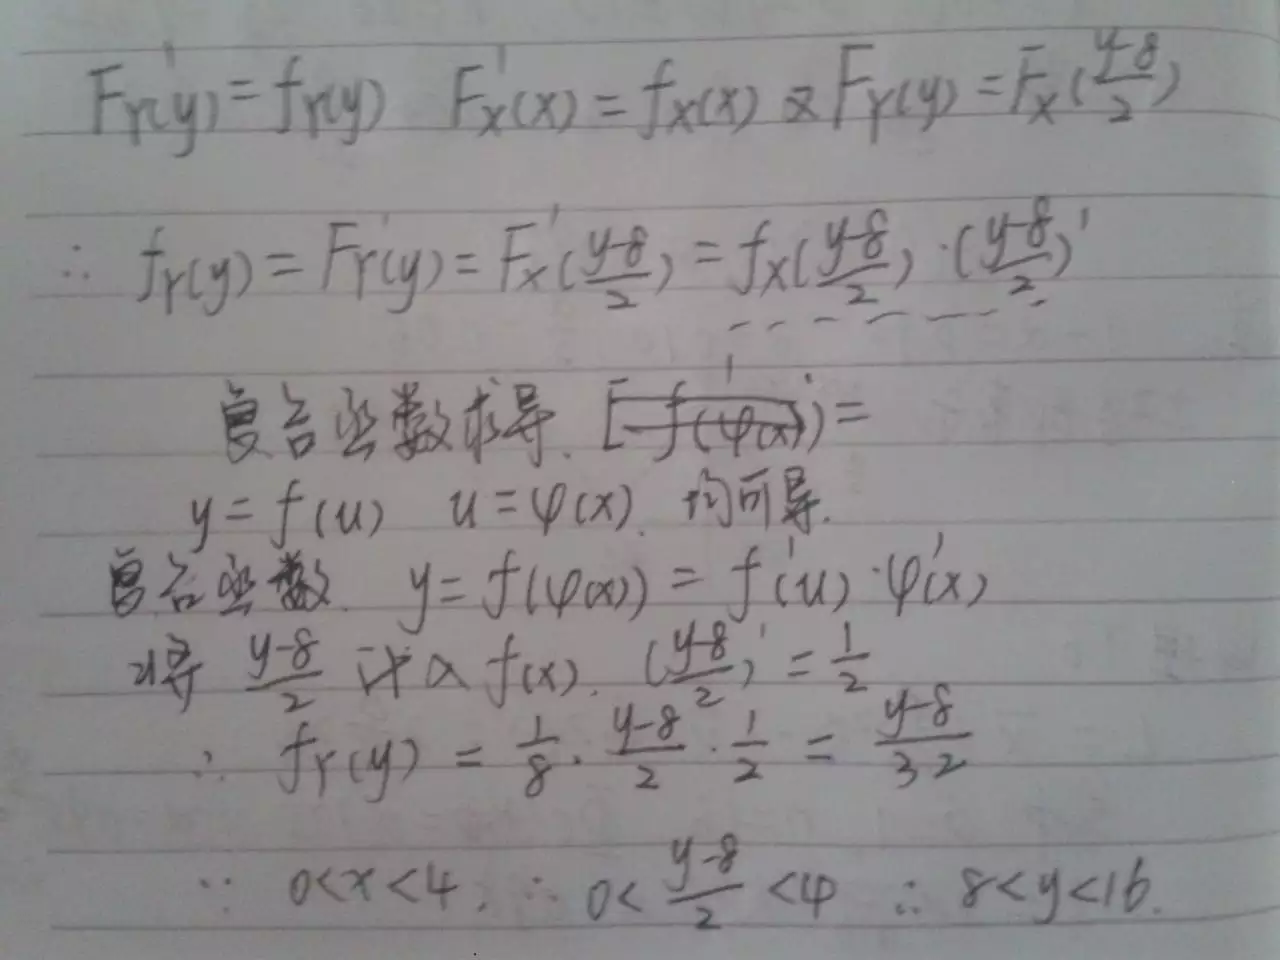 F_Y'(y) = f_Y(y) F_X'(x) = f_X(x) 又 F_Y(y) = F_X(\frac{y-8}{2})
∴ f_Y(y) = F_Y'(y) = F_X'(\frac{y-8}{2}) = f_X(\frac{y-8}{2}) · (\frac{y-8}{2})'
复合函数求导. [f(φ(x))' =
y = f(u) u = φ(x). 均可导.
复合函数. y = f(φ(x)) = f'(u) · φ'(x)
将 \frac{y-8}{2} 代入 f(x). (\frac{y-8}{2})' = \frac{1}{2}
∴ f_Y(y) = \frac{1}{8} · \frac{y-8}{2} · \frac{1}{2} = \frac{y-8}{32}
∵ 0<x<4. ∴ 0<\frac{y-8}{2}<4 ∴ 8<y<16.